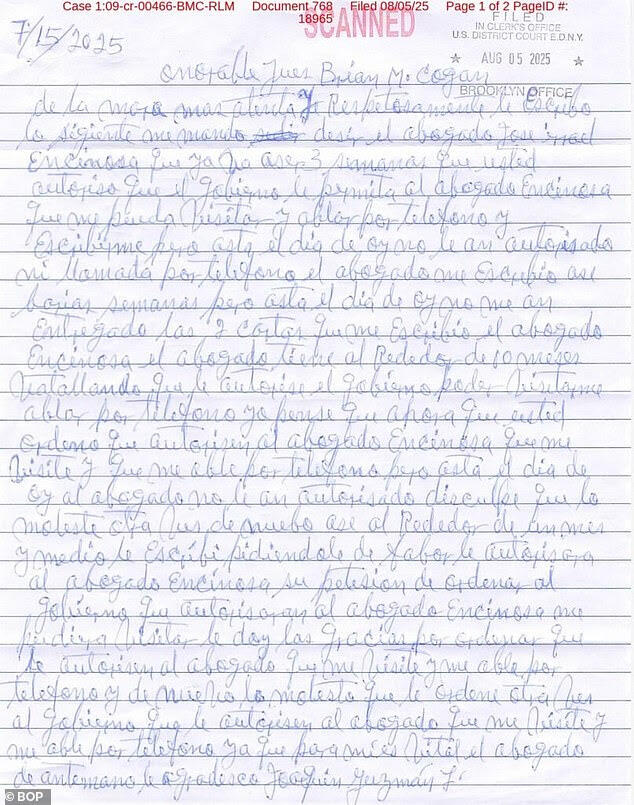 Case 1:09-cr-00466-BMC-RLM Document 768 Filed 08/05/25 Page 1 of 2 PageID #:
18965
SCANNED
FILED
IN CLERK'S OFFICE
U.S. DISTRICT COURT E.D.N.Y.
★ AUG 05 2025 ★
BROOKLYN OFFICE
7/15/2025
onorable Jues Brian M. Cogan
de la mara mas atenta y Respetosamente le Escribo
lo sigiente me mando desir el abogado Jose
Encinosa que ya va aser 3 semanas que usted
autoriso que el gobierno le permita al abogado Encinosa
que me pueda visitar y ablar por telefono y
Escribirme pero asta el dia de oy no le an autorisado
ni llamada por telefono el abogado me Escribio ase
barias semanas pero asta el dia de oy no me an
Entregado las 2 cartas que me Escribio el abogado
Encinosa el abogado tiene al Rededor de 10 meses
batallando que le autorise el gobierno poder visitarme
ablar por telefono yo pense que ahora que usted
ordeno que autorisen al abogado Encinosa que me
visite y que me able por telefono pero asta el dia de
oy al abogado no le an autorisado disculpe que lo
moleste otra ves de nuebo ase al Rededor de un mes
y medio le Escribi pidiendole de fabor le autorisara
al abogado Encinosa su petesion de ordenar al
gobierno que autorisaran al abogado Encinosa me
pudiera visitar le doy las gracias por ordenar que
le autorisen al abogado que me visite y me able por
telefono y de nuevo lo molesto que le ordene otra ves
al gobierno que le autorisen al abogado que me visite y
me able por telefono ya que para mi es vital el abogado
de antemano le agradesco Joaquin Guzman L.
© BOP